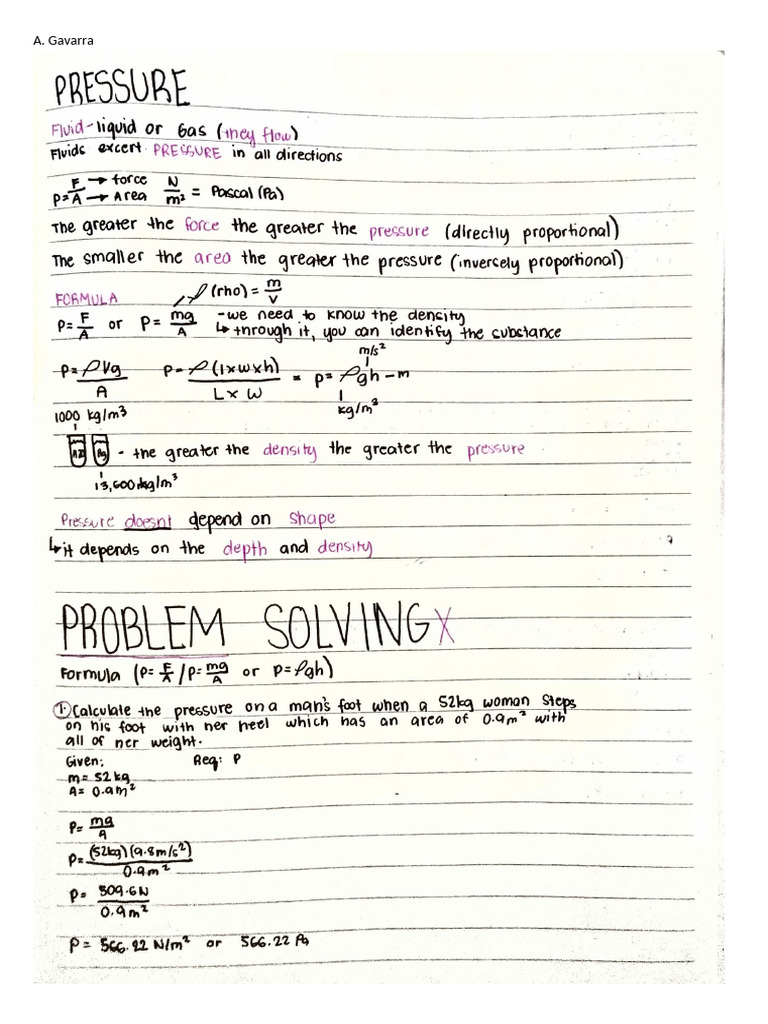 A. Gavarra
PRESSURE
Fluid - liquid or Gas (they flow)
Fluids excert PRESSURE in all directions
P = F/A → force → Area N/m² = Pascal (Pa)
The greater the force the greater the pressure (directly proportional)
The smaller the area the greater the pressure (inversely proportional)
FORMULA ρ (rho) = m/v
P = F/A or P = mg/A - we need to know the density
↳ through it, you can identify the substance
P = ρVg/A P = ρ(l×w×h)/L×W = P = ρgh - m
m/s²
kg/m³
1000 kg/m3
- the greater the density the greater the pressure
13,600kg/m³
Pressure doesnt depend on shape
↳ it depends on the depth and density
PROBLEM SOLVING X
Formula (P = F/A / P = mg/A or P = ρgh)
1. Calculate the pressure on a man's foot when a 52kg woman steps
on his foot with her heel which has an area of 0.9m² with
all of her weight.
Given: Req: P
m = 52 kg
A = 0.9m²
P = mg/A
P = (52kg)(9.8m/s²)/0.9m²
P = 509.6N/0.9m²
P = 566.22 N/m² or 566.22 Pa